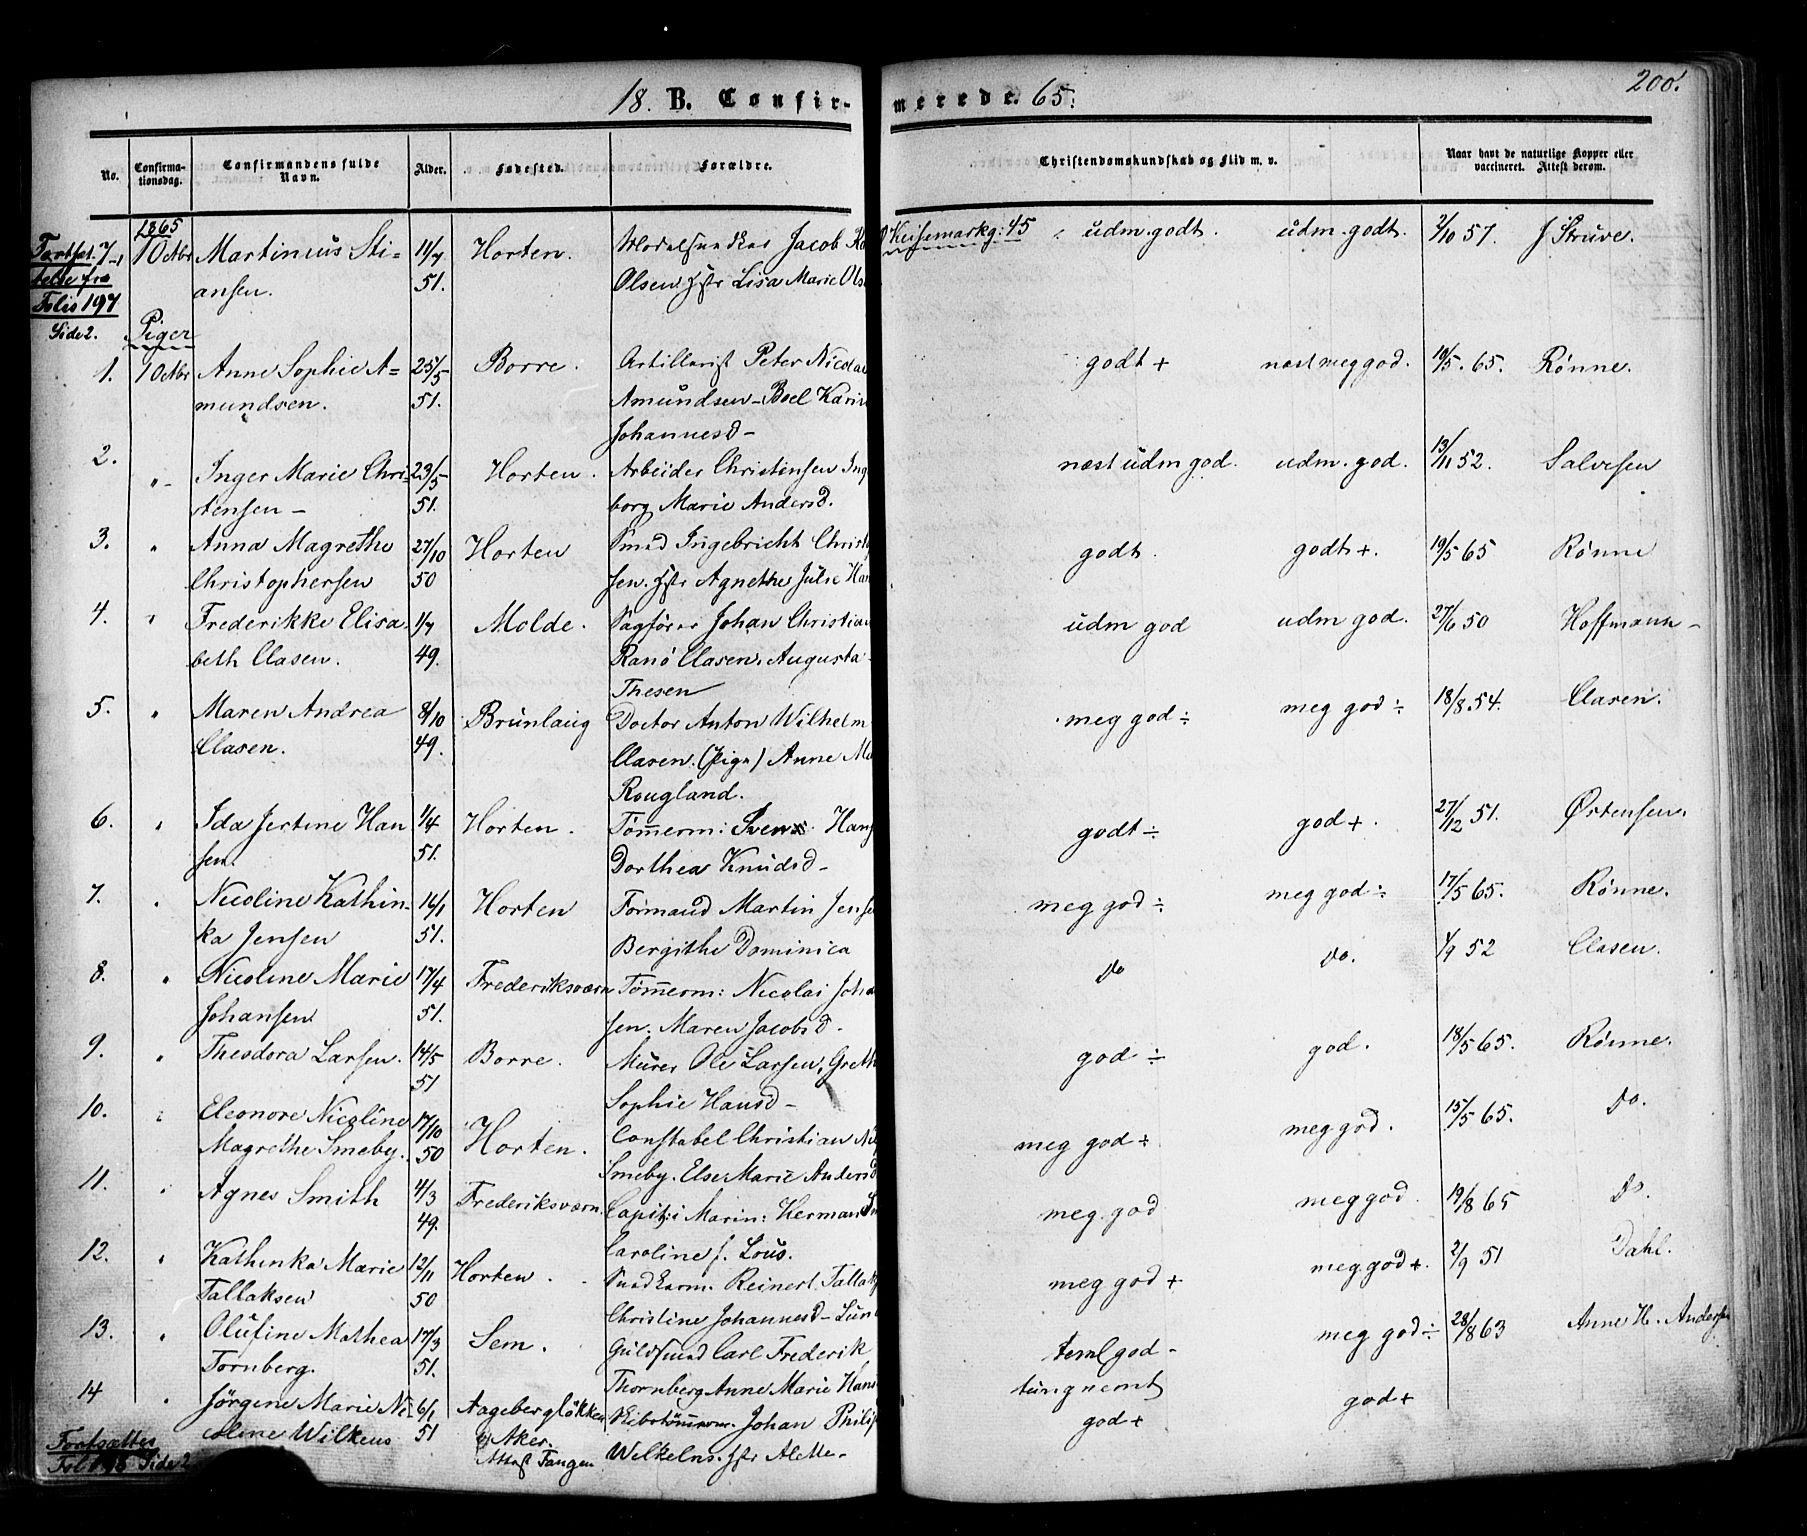 18. B. Confirmerede. 65.
200.
No.
Confirmationsdag.
Confirmandens fulde Navn.
Alder.
Fødested.
Forældre.
Christendomskundskab og Flid m. v.
Naar havt de naturlige Kopper eller vaccineret. Attest derom.
1865
Fortsat
Folio 197
Side 2.
7 1 Octbr Martinus Sti- 11/7 Horten. Jacob Keisemarkg: 45 udm. godt. udm. godt. 2/10 57. J Struve.
ansen. 51. Olsen Lisa Marie Ols
Piger
1. 1 Octbr Anne Sophie A= 25/5 Borre. Artillerist Peter Nicolai godt + næst meg god. 19/5. 65. Rønne.
mundsen. 51. Amundsen - Boel Karin
Johannesd -
2. " Inger Marie Chri- 23/5 Horten. Arbeider Christensen Ing næst udm god. udm. god. 13/11 52. Salvesen
stensen - 51. borg Marie Andersd.
3. " Anna Magrethe 27/10 Horten Smed Ingebricht Christ godt. godt +. 19/5 65 Rønne
Christophersen 50 sen. Agnethe Julie Han
4. " Frederikke Elisa 1/7 Molde. Sagfører Johan Christian udm god udm god. 27/6 50 Hoffmann -
beth Clasen. 49. Ranø Clasen. Augusta
Thesen
5. " Maren Andrea 8/10 Brunlaug Doctor Anton Wilhelm meg god ÷ meg god ÷ 18/8. 54. Clasen.
Clasen. 49. Clasen. Anne Ma
Rougland.
6. " Ida Jertine Han 1/4 Horten. Tømmerm: Svend Hans godt ÷ god +. 27/12 51. Ørtensen.
sen. 51. Dorthea Knudsd -
7. " Nicoline Kathin- 16/1 Horten Formand Martin Jens meg god ÷ meg god ÷ 17/5 65. Rønne.
ka Jensen 51. Bergithe Dominica
8. " Nicoline Marie 17/4 Frederiksværn Tømmerm: Nicolai Joha Do Do. 1/9 52 Clasen.
Johansen 51. sen. Maren Jacobsd -
9. " Theodora Larsen. 14/5 Borre. Murer Ole Larsen, Greth god ÷ god. 18/5 65. Rønne.
51 Sophie Hansd -
10. " Eleonore Nicoline 17/10 Horten. Constabel Christian Nil meg god + meg god. 15/5 65. Do.
Magrethe Smeby. 50 Smeby. Else Marie Andersd
11. " Agnes Smith 4/3 Frederiksværn. Capit: i Marin: Herman Sm meg god meg god. 19/8 65 Do.
49. Caroline f. Lous.
12. " Kathinka Marie 12/11 Horten. Reinert Tallaks meg god + meg god +. 2/9 51 Dahl.
Tallaksen 50 Christine Johannesd - Lun
13. " Olufine Mathea 17/3 Sem. Guldsmed Carl Frederik teml god - meg god ÷ 28/8 63 Anne H. Anders
Tornberg. 51. Thornberg Anne Marie Hans tungnemt
14 " Jørgine Marie Ni- 6/1 Aagebergløkken Skibstømmerm. Johan Philip god + god +
coline Wilkens 51 Aker. Wilkelns. Alette -
Attest Fangen
Fortsættes
Fol 198 Side 2